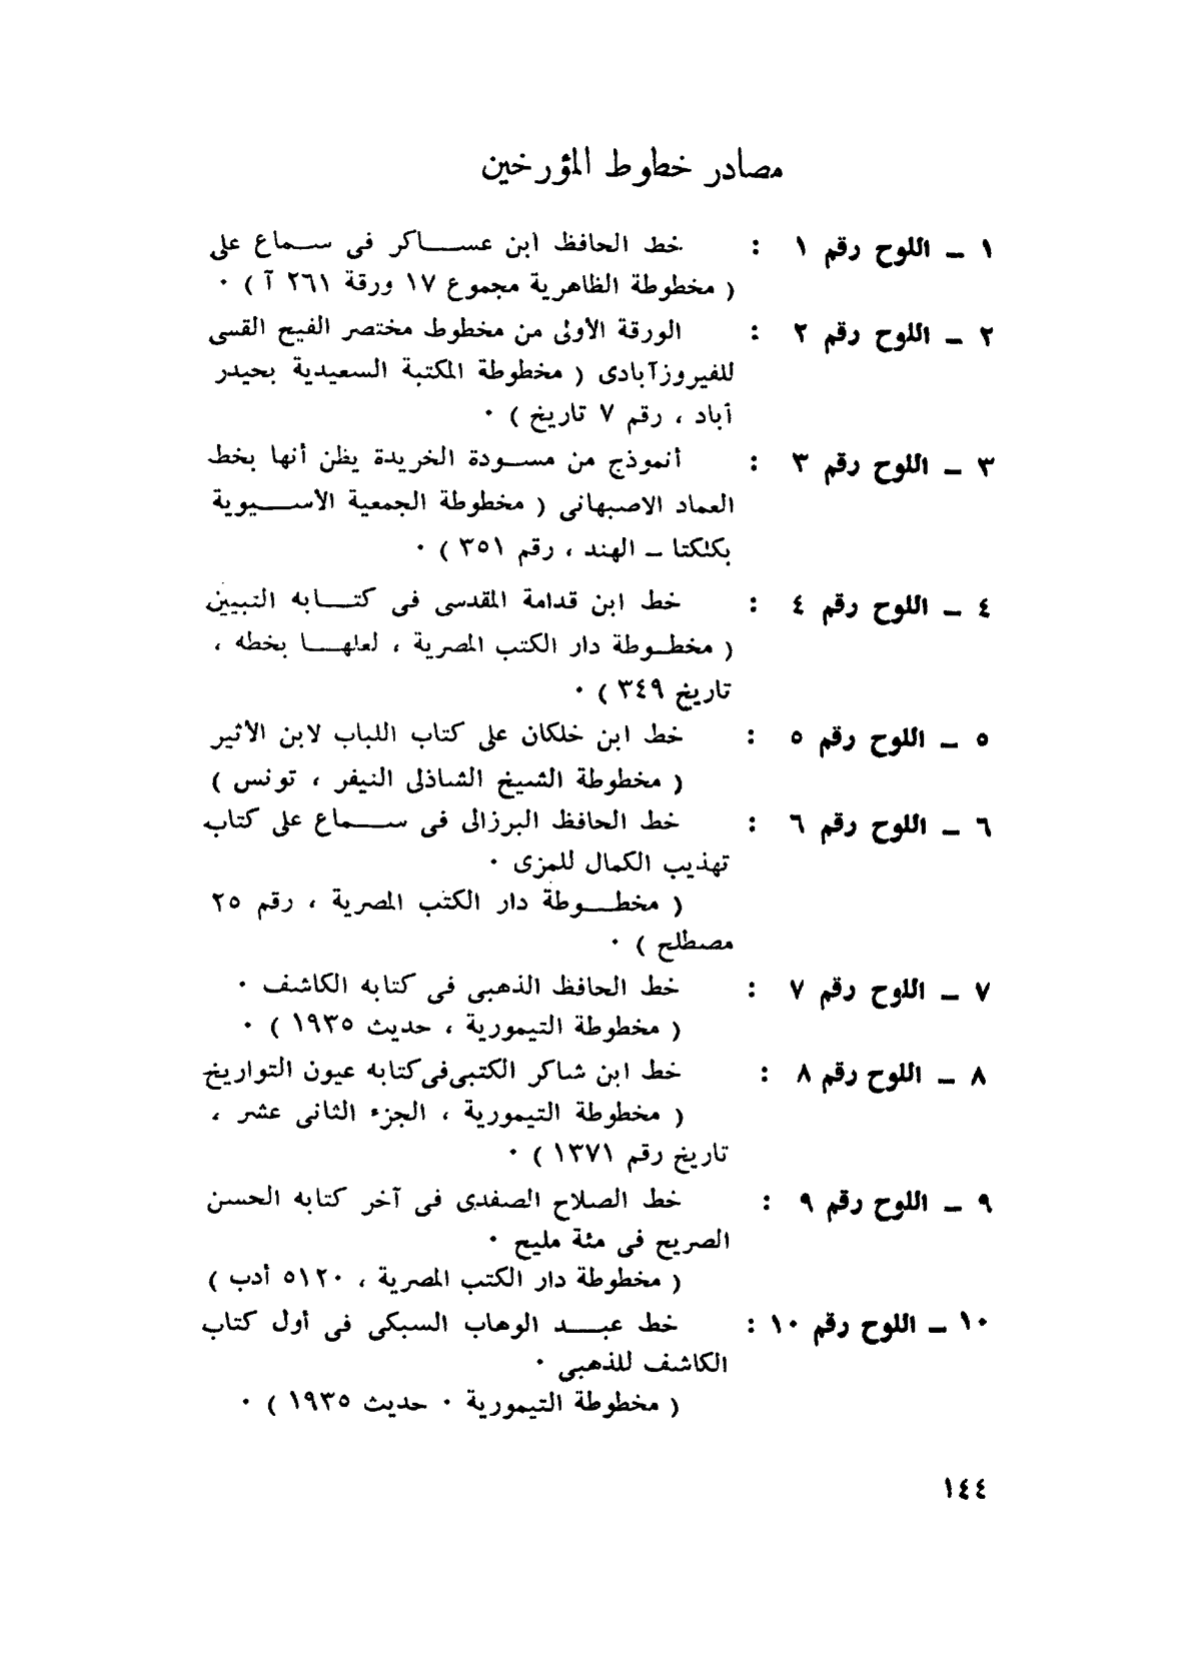 مصادر خطوط المؤرخين
١ ـ اللوح رقم ١ : خط الحافظ ابن عساكر فى سماع على
( مخطوطة الظاهرية مجموع ١٧ ورقة ٢٦١ آ ) ٠
٢ ـ اللوح رقم ٢ : الورقة الأولى من مخطوط مختصر الفيح القسى
للفيروزآبادى ( مخطوطة المكتبة السعيدية بحيدر
آباد ، رقم ٧ تاريخ ) ٠
٣ ـ اللوح رقم ٣ : أنموذج من مسودة الخريدة يظن أنها بخط
العماد الاصبهانى ( مخطوطة الجمعية الأسيوية
بكلكتا ـ الهند ، رقم ٣٥١ ) ٠
٤ ـ اللوح رقم ٤ : خط ابن قدامة المقدسى فى كتابه التبيين
( مخطوطة دار الكتب المصرية ، لعلها بخطه ،
تاريخ ٣٤٩ ) ٠
٥ ـ اللوح رقم ٥ : خط ابن خلكان على كتاب اللباب لابن الأثير
( مخطوطة الشيخ الشاذلى النيفر ، تونس )
٦ ـ اللوح رقم ٦ : خط الحافظ البرزالى فى سماع على كتاب
تهذيب الكمال للمزى ٠
( مخطوطة دار الكتب المصرية ، رقم ٢٥
مصطلح ) ٠
٧ ـ اللوح رقم ٧ : خط الحافظ الذهبى فى كتابه الكاشف ٠
( مخطوطة التيمورية ، حديث ١٩٣٥ ) ٠
٨ ـ اللوح رقم ٨ : خط ابن شاكر الكتبى فى كتابه عيون التواريخ
( مخطوطة التيمورية ، الجزء الثانى عشر ،
تاريخ رقم ١٣٧١ ) ٠
٩ ـ اللوح رقم ٩ : خط الصلاح الصفدى فى آخر كتابه الحسن
الصريح فى مئة مليح ٠
( مخطوطة دار الكتب المصرية ، ٥١٢٠ أدب )
١٠ ـ اللوح رقم ١٠ : خط عبد الوهاب السبكى فى أول كتاب
الكاشف للذهبى ٠
( مخطوطة التيمورية ٠ حديث ١٩٣٥ ) ٠
١٤٤